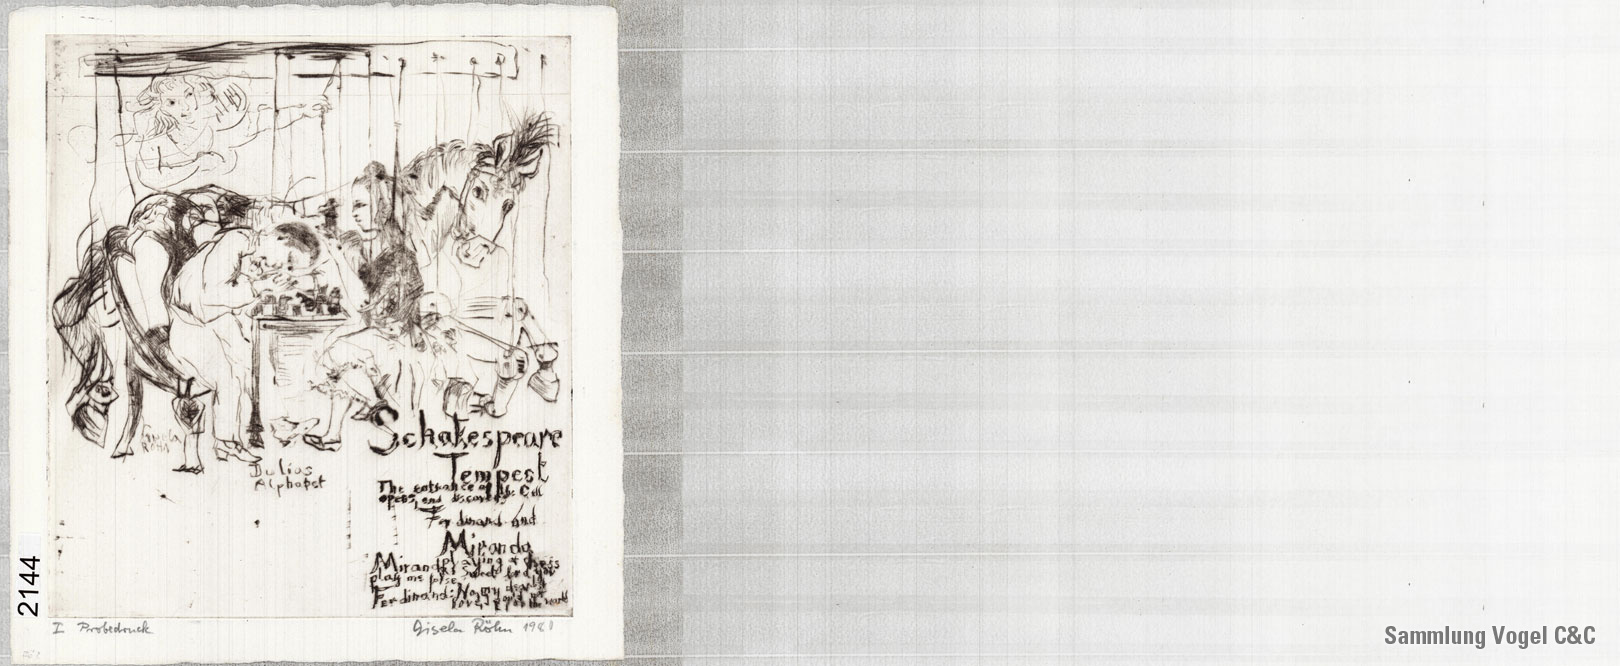 Gisela
Röhn
Julias
Alphabet
Schakespeare
Tempest
The entrance of the Cell
opens, and discovers
Ferdinand and
Miranda
playing chess
Miranda: Sweet lord you
play me false
Ferdinand: No my dearest
love, I would not for the world
2144
I Probedruck
Gisela Röhn 1981
Sammlung Vogel C&C